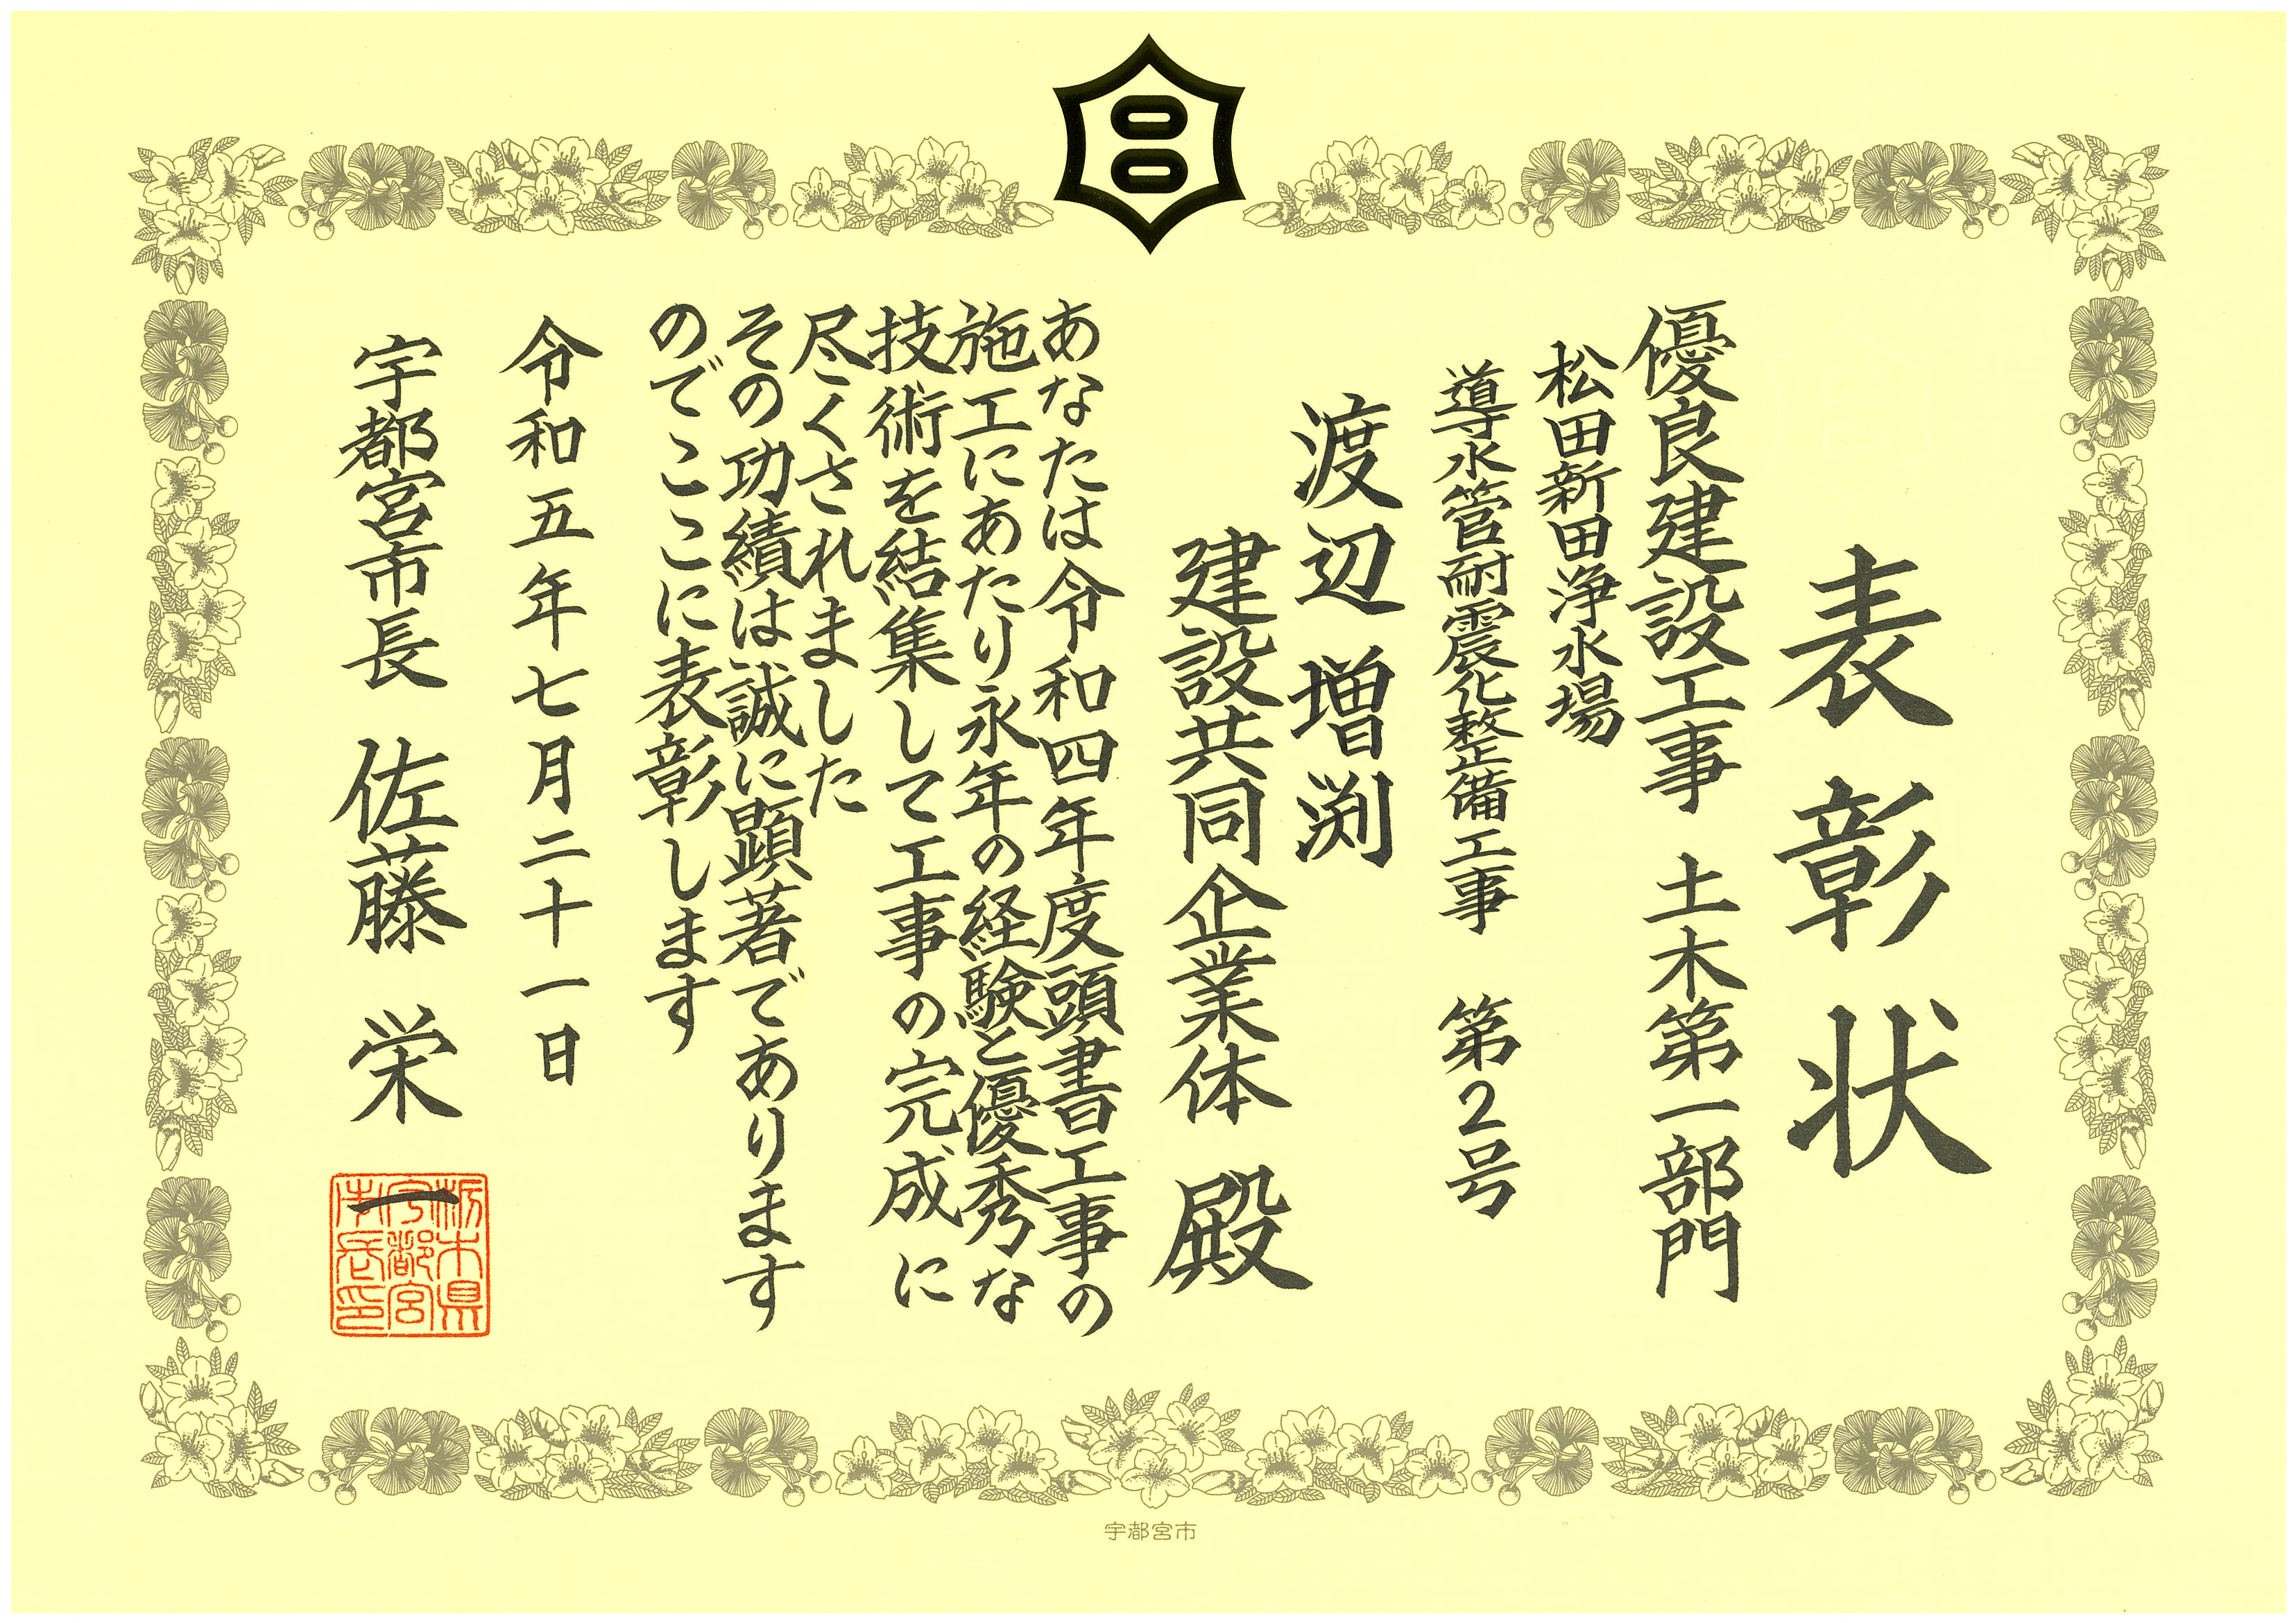 表彰状
優良建設工事 土木第一部門
松田新田浄水場
導水管耐震化整備工事 第2号
渡辺 増渕
建設共同企業体 殿
あなたは令和四年度頭書工事の
施工にあたり永年の経験と優秀な
技術を結集して工事の完成に
尽くされました
その功績は誠に顕著であります
のでここに表彰します
令和五年七月二十一日
宇都宮市長 佐藤 栄一
栃木県
宇都宮
市長印
宇都宮市